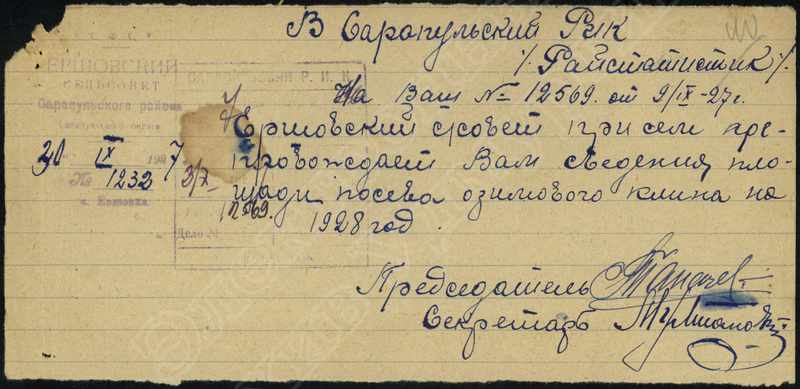 В Сарапульский Рик
/. Райстатистик /.
На Ваш № 12569. от 9/IX-27 г.
Ершовский с/совет при сем пре-
провождает Вам сведения пло-
щади посева озимового клина на
1928 год.
Председатель
Секретарь
ЕРШОВСКИЙ
СЕЛЬСОВЕТ
Сарапульского района
30 IX 1927
№ 1232
с. Ершовка
Р. И. К.
3/X
12569.
Дело №